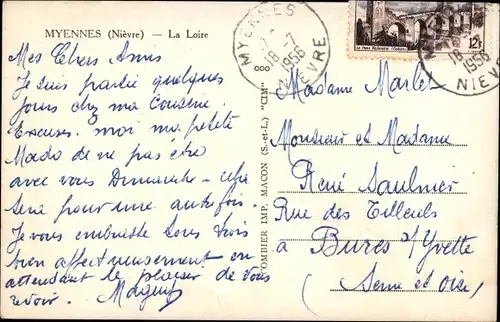 MYENNES (Nièvre) — La Loire
Mes Chers Amis
Je suis partie quelques
jours chez ma Cousine
Excusez-moi ma petite
Mado de ne pas être
avec vous Dimanche - cela
sera pour une autre fois.
Je vous embrasse tous trois
bien affectueusement en
attendant le plaisir de vous
revoir.
COMBIER IMP. MACON (S.-et-L.) "CIM"
MYENNES
18 -7
1956
NIEVRE
12F
18
1956
NIEV
Madame Marlet
Monsieur et Madame
René Saulnier
Rue des Tilleuls
à Bures s/Yvette
(Seine et Oise)